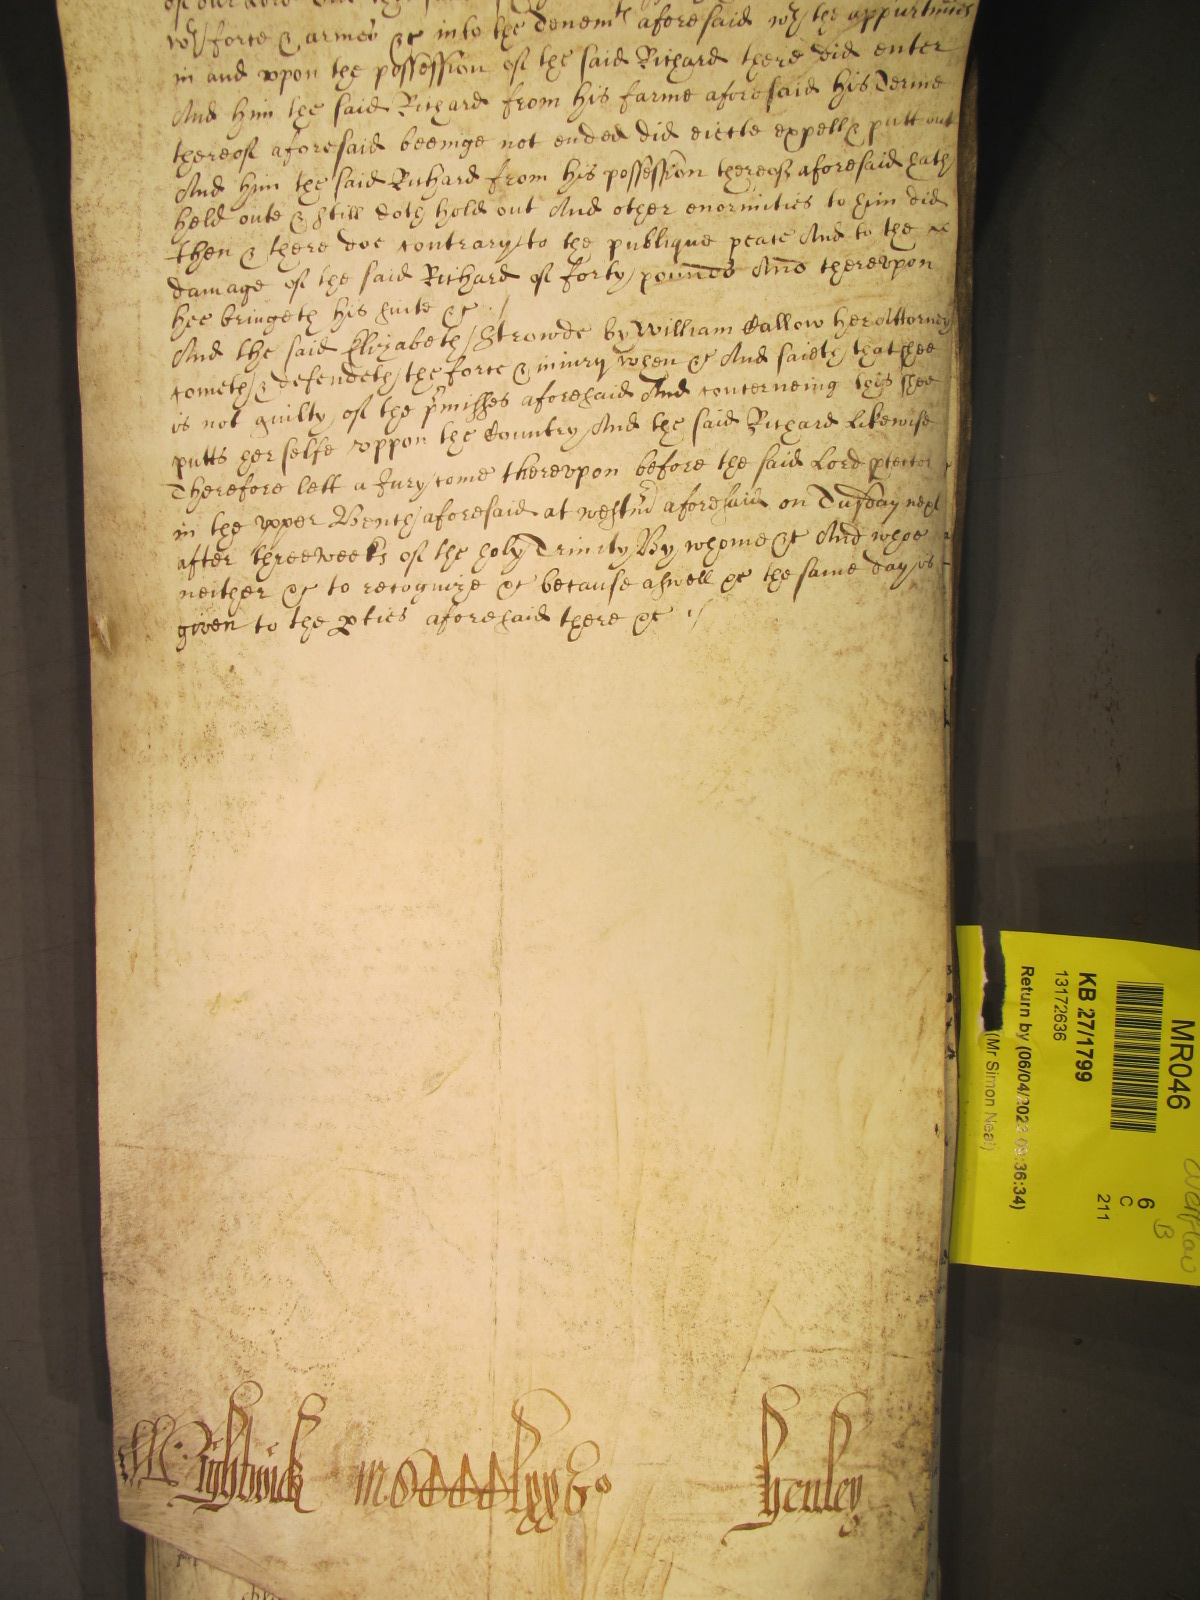 wth force & armes &c into the Tenemts aforesaid wth the appurtnnces
in and vpon the possession of the said Richard there did enter
And him the said Richard from his farme aforesaid his Terme
thereof aforesaid beeinge not ended did eiecte expell & putt out
And him the said Richard from his possession thereof aforesaid hath
held oute & still doth hold out And other enormities to him did
then & there doe contrary to the publique peace And to the
damage of the said Richard of forty pounds And therevpon
hee bringeth his suite &c
And the said Elizabeth Strowde by William Callow her Attorney
cometh & defendeth the force & iniury when &c And saieth that shee
is not guilty of the pmisses aforesaid And concerneing this shee
putts her selfe vppon the Country And the said Richard likewise
Therefore lett a Jury come therevpon before the said Lord ptector
in the vpper Bench aforesaid at westmr aforesaid on Tuesday next
after three weekes of the holy Trinity By whome &c And whoe
neither &c to recognize &c because aswell &c the same day is
given to the pties aforesaid there &c
Wightwick
Henley
MR046
KB 27/1799
13172636
Return by (06/04/2023 09:36:34)
(Mr Simon Neal)
6
C
211
overflow
B